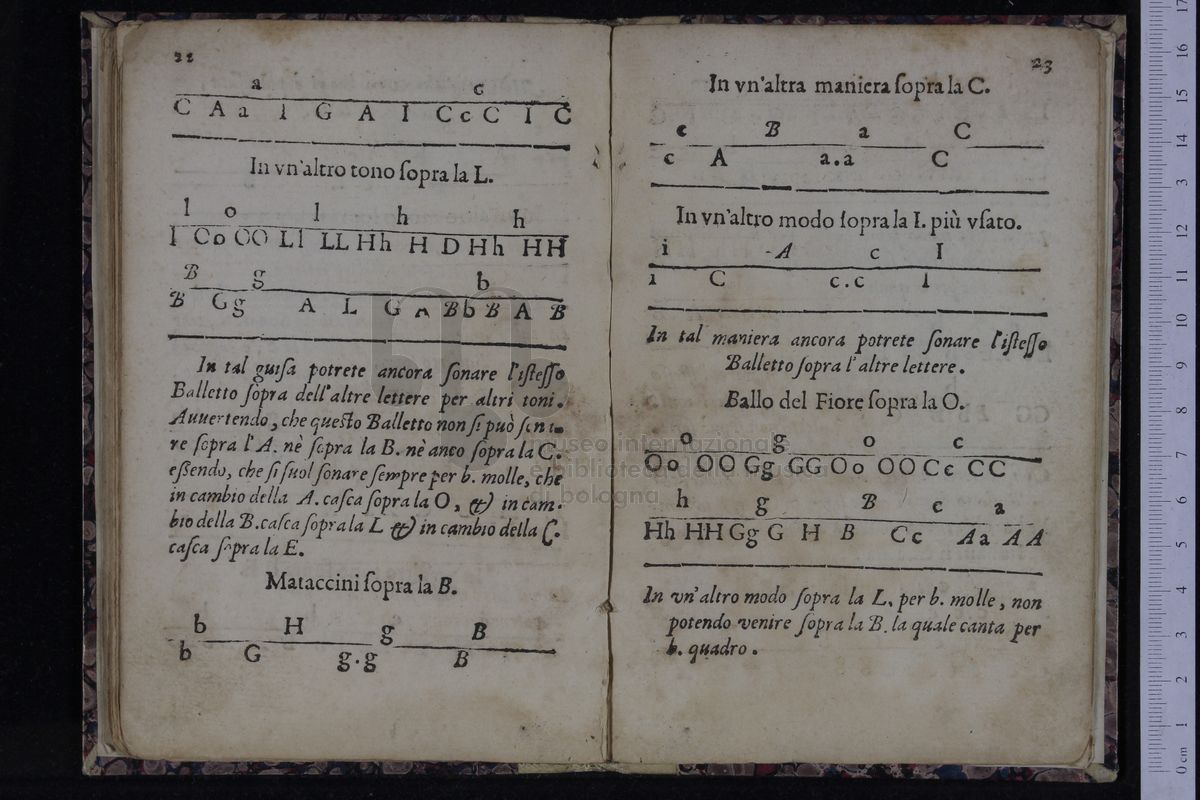 22
a c
C A a I G A I C c C I C
In vn'altro tono ſopra la L.
l o l h h
l C o O O L l L L H h H D H h H H
B g b
B G g A L G A B b B A B
In tal guiſa potrete ancora ſonare l'iſteſſo
Balletto ſopra dell'altre lettere per altri toni.
Auuertendo, che queſto Balletto non ſi può
re ſopra l'A. nè ſopra la B. nè anco ſopra la C.
eſſendo, che ſi ſuol ſonare ſempre per b. molle, che
in cambio della A. caſca ſopra la O, & in cam-
bio della B. caſca ſopra la L & in cambio della C.
caſca ſopra la E.
Mataccini ſopra la B.
b H g B
b G g.g B
23
In vn'altra maniera ſopra la C.
c B a C
c A a.a C
In vn'altro modo ſopra la I. più vſato.
i -A c I
i C c.c I
In tal maniera ancora potrete ſonare l'iſteſſo
Balletto ſopra l'altre lettere.
Ballo del Fiore ſopra la O.
o g o c
O o O O G g G G O o O O C c C C
h g B c a
H h H H G g G H B C c A a A A
In vn'altro modo ſopra la L. per b. molle, non
potendo venire ſopra la B. la quale canta per
b. quadro.
museo internazionale
e biblioteca della musica
di bologna
0 cm 1 2 3 4 5 6 7 8 9 10 11 12 13 14 15 16 17